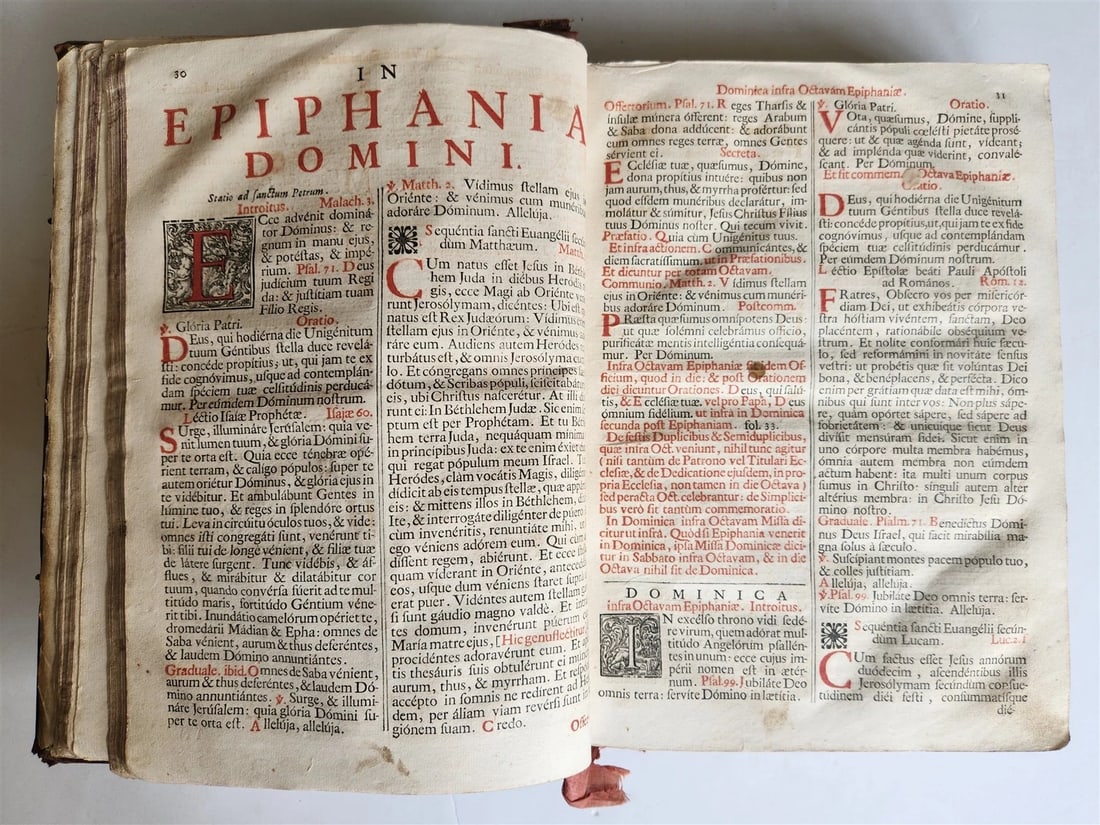 30
IN
EPIPHANIA
DOMINI.
Statio ad sanctum Petrum.
Introitus. Malach. 3.
ECce advénit dominá-
tor Dóminus: & re-
gnum in manu ejus,
& potéstas, & impé-
rium. Psal. 71. Deus
judícium tuum Regi
da: & justítiam tuam
Fílio Regis.
℣. Glória Patri. Oratio.
DEus, qui hodiérna die Unigénitum
tuum Géntibus stella duce revelá-
sti: concéde propítius; ut, qui jam te ex
fide cognóvimus, usque ad contemplán-
dam spéciem tuæ celsitúdinis perducá-
mur. Per eúmdem Dóminum nostrum.
Léctio Isaíæ Prophétæ. Isajæ 60.
SUrge, illumináre Jerúsalem: quia ve-
nit lumen tuum, & glória Dómini su-
per te orta est. Quia ecce ténebræ opé-
rient terram, & calígo pópulos: super te
autem oriétur Dóminus, & glória ejus in
te vidébitur. Et ambulábunt Gentes in
lúmine tuo, & reges in splendóre ortus
tui. Leva in circúitu óculos tuos, & vide:
omnes isti congregáti sunt, venérunt ti-
bi: fílii tui de longè vénient, & fíliæ tuæ
de látere surgent. Tunc vidébis, & áf-
flues, & mirábitur & dilatábitur cor
tuum, quando convérsa fúerit ad te mul-
titúdo maris, fortitúdo Géntium véne-
rit tibi. Inundátio camelórum opériet te,
dromedárii Mádian & Epha: omnes de
Saba vénient, aurum & thus deferéntes,
& laudem Dómino annuntiántes.
Graduale. ibid. Omnes de Saba vénient,
aurum & thus deferéntes, & laudem Dó-
mino annuntiántes. ℣. Surge, & illumi-
náre Jerúsalem: quia glória Dómini su-
per te orta est. Allelúja, allelúja.
℣. Matth. 2. Vídimus stellam ejus
Oriénte: & vénimus cum munéribus
adoráre Dóminum. Allelúja.
Sequéntia sancti Euangélii secún-
dùm Matthæum. Matth.
CUm natus esset Jesus in Béth
lehem Juda in diébus Heródis
gis, ecce Magi ab Oriénte vené
runt Jerosólymam, dicéntes: Ubi est
natus est Rex Judæórum: Vídimus
stellam ejus in Oriénte, & vénimus
ráre eum. Audiens autem Heródes
turbátus est, & omnis Jerosólyma cum
lo. Et cóngregans omnes príncipes
dótum, & Scribas pópuli, sciscitabátur
eis, ubi Christus nascerétur. At illi
runt ei: In Béthlehem Judæ. Sic enim
ptum est per Prophétam. Et tu Béth
hem terra Juda, nequáquam mínima
in princípibus Juda: ex te enim éxiet
qui regat pópulum meum Israel. Tunc
Heródes, clàm vocátis Magis, diligén
dídicit ab eis tempus stellæ, quæ appáruit
eis: & mittens illos in Béthlehem,
Ite, & interrogáte diligénter de púero
cùm invenéritis, renuntiáte mihi, ut
ego véniens adórem eum. Qui cùm
dissent regem, abiérunt. Et ecce
quam víderant in Oriénte, antecedé
eos, usque dum véniens staret supra
erat puer. Vidéntes autem stellam
si sunt gáudio magno valdè. Et in
tes domum, invenérunt púerum cum
María matre ejus, [Hic genuflectitur
procidéntes adoravérunt eum. Et
tis thesáuris suis obtulérunt ei múnera
aurum, thus, & myrrham. Et respón
accépto in somnis ne redírent ad He
dem, per áliam viam revérsi sunt in
giónem suam. Credo. Offert
Dominica infra Octavam Epiphaniæ. 31
Offertorium. Psal. 71. Reges Tharsis &
ínsulæ múnera ófferent: reges Arabum
& Saba dona addúcent: & adorábunt
eum omnes reges terræ, omnes Gentes
sérvient ei. Secreta.
ECclésiæ tuæ, quæsumus, Dómine,
dona propítius intuére: quibus non
jam aurum, thus, & myrrha profértur: sed
quod eísdem munéribus declarátur, im-
molátur & súmitur, Jesus Christus Fílius
tuus Dóminus noster. Qui tecum vivit.
Præfatio. Quia cùm Unigénitus tuus.
Et infra actionem. Communicántes, &
diem sacratíssimum. ut in Præfationibus.
Et dicuntur per totam Octavam.
Communio. Matth. 2. Vídimus stellam
ejus in Oriénte: & vénimus cum munéri-
bus adoráre Dóminum. Postcomm.
PRæsta quæsumus omnípotens Deus:
ut quæ solémni celebrámus offício,
purificátæ mentis intelligéntia consequá-
mur. Per Dóminum.
Infra Octavam Epiphaniæ fit idem Of-
ficium, quod in die: & post Orationem
diei dicuntur Orationes. Deus, qui salú-
tis, & Ecclésiæ tuæ. vel pro Papa, Deus
ómnium fidélium. ut infra in Dominica
secunda post Epiphaniam. fol. 33.
De festis Duplicibus & Semiduplicibus,
quæ infra Oct. veniunt, nihil tunc agitur
( nisi tantùm de Patrono vel Titulari Ec-
clesiæ, & de Dedicatione ejusdem, in pro-
pria Ecclesia, non tamen in die Octava )
sed peracta Oct. celebrantur: de Simplici-
bus verò fit tantùm commemoratio.
In Dominica infra Octavam Missa di-
citur ut infra. Quòd si Epiphania venerit
in Dominica, ipsa Missa Dominicæ dici-
tur in Sabbato infra Octavam, & in die
Octava nihil fit de Dominica.
DOMINICA
infra Octavam Epiphaniæ. Introitus.
IN excélso throno vidi sedé-
re virum, quem adórat mul-
titúdo Angelórum psallén-
tes in unum: ecce cujus im-
périi nomen est in ætér-
num. Psal. 99. Jubiláte Deo
omnis terra: servíte Dómino in lætítia.
℣. Glória Patri. Oratio.
VOta, quæsumus, Dómine, supplí-
cántis pópuli cœlésti pietáte prosé-
quere: ut & quæ agénda sunt, vídeant;
& ad implénda quæ víderint, convalé-
scant. Per Dóminum.
Et fit commem. Octava Epiphaniæ.
Oratio.
DEus, qui hodiérna die Unigénitum
tuum Géntibus stella duce revelá-
sti: concéde propítius, ut, qui jam te ex fide
cognóvimus, usque ad contemplándam
spéciem tuæ celsitúdinis perducámur.
Per eúmdem Dóminum nostrum.
Léctio Epístolæ beáti Pauli Apóstoli
ad Romános. Rom. 12.
FRatres, Obsecro vos per misericór-
diam Dei, ut exhibeátis córpora ve-
stra hóstiam vivéntem, sanctam, Deo
placéntem, rationábile obséquium ve-
strum. Et nolíte conformári huic sæcu-
lo, sed reformámini in novitáte sensus
vestri: ut probétis quæ sit volúntas Dei
bona, & benéplacens, & perfécta. Dico
enim per grátiam quæ data est mihi, óm-
nibus qui sunt inter vos: Non plus sápe-
re, quàm opórtet sápere, sed sápere ad
sobrietátem: & unicuíque sicut Deus
divísit mensúram fídei. Sicut enim in
uno córpore multa membra habémus,
ómnia autem membra non eúmdem
actum habent: ita multi unum corpus
sumus in Christo: sínguli autem alter
altérius membra: in Christo Jesu Dó-
mino nostro.
Graduale. Psalm. 71. Benedíctus Dómi-
nus Deus Israel, qui facit mirabília ma-
gna solus à sæculo.
℣. Suscípiant montes pacem pópulo tuo,
& colles justítiam.
Allelúja, allelúja.
℣. Psal. 99. Jubiláte Deo omnis terra: ser-
víte Dómino in lætítia. Allelúja.
Sequéntia sancti Euangélii secún-
dùm Lucam. Luc. 2. f
CUm factus esset Jesus annórum
duódecim, ascendéntibus illis
Jerosólymam secúndùm consue-
túdinem diéi festi, consummatísque
dié-